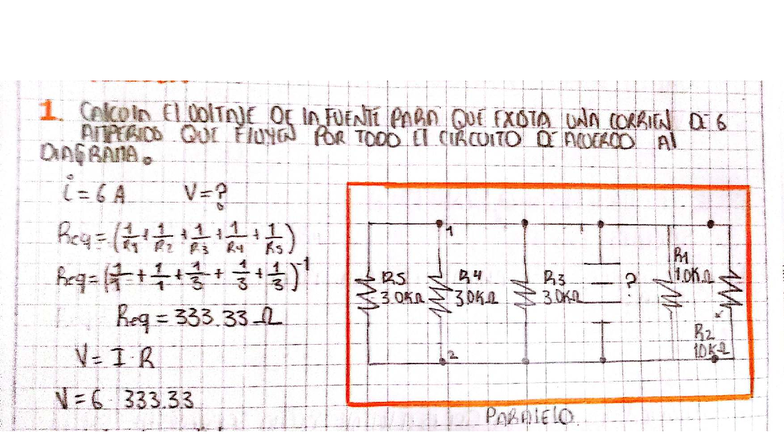 1. CALCULA EL VOLTAJE DE LA FUENTE PARA QUE EXISTA UNA CORRIEN DE 6
AMPERIOS QUE FLUYEN POR TODO EL CIRCUITO DE ACUERDO AL
DIAGRAMA.
i = 6 A V = ?
Req = (1/R1 + 1/R2 + 1/R3 + 1/R4 + 1/R5)
Req = (1/1 + 1/1 + 1/3 + 1/3 + 1/3)^-1
Req = 333.33 Ω
V = I · R
V = 6 · 333.33
1
R5
3.0KΩ
R4
3.0KΩ
R3
3.0KΩ
?
R1
1.0KΩ
R2
1.0KΩ
2
PARALELO